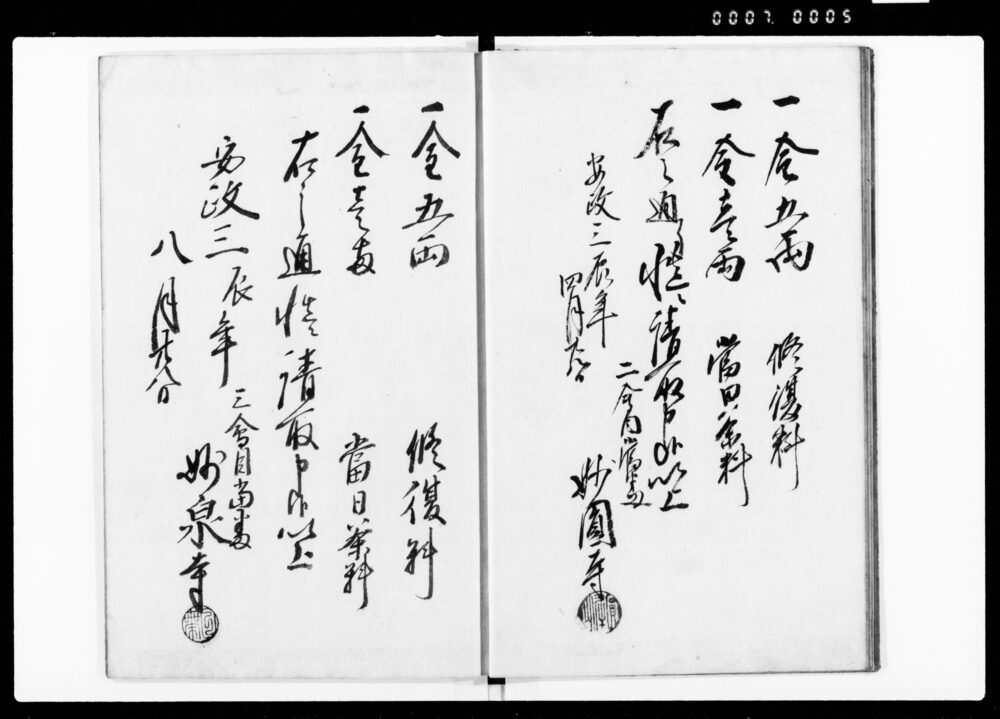 0007. 0005
一金五両
修復料
一金壱両
當日茶料
右之通慥ニ請取申候以上
安政三辰年
四月
二會目當番
妙圓寺
一金五両
修復料
一金壱両
當日茶料
右之通慥ニ請取申候以上
安政三辰年
八月廿八日
三會目當番
妙泉寺